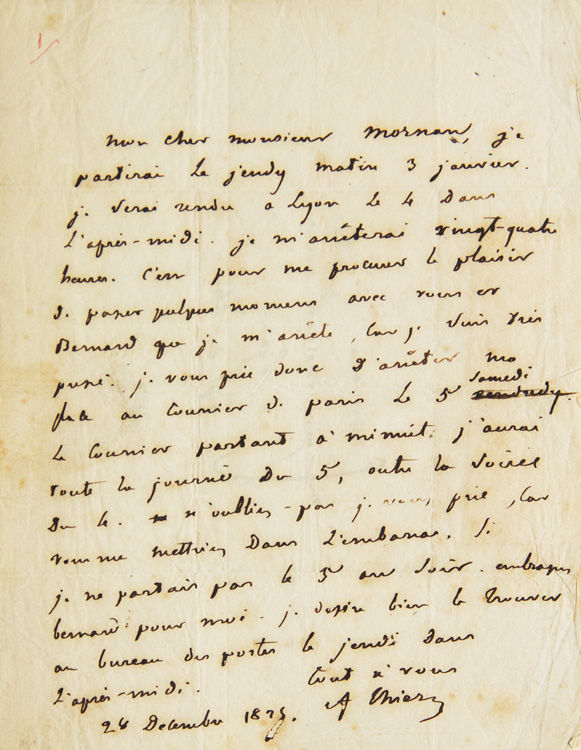 1
mon cher monsieur mornan, je
partirai le jeudy matin 3 janvier.
je serai rendu a Lyon le 4 dans
l'après-midi. je m'arrêterai vingt-quatre
heures. C'est pour me procurer le plaisir
de passer quelques momens avec vous et
Bernard que je m'arrête, Car je suis très
pressé. je vous prie donc d'arrêter ma
place au Courrier de paris le 5 samedi
le Courrier partant à minuit. j'aurai
toute la journée du 5, outre la soirée
du 4. n'oubliez-pas je vous prie, Car
vous me mettriez dans l'embarras. Si
je ne partais pas le 5 au soir. embrassez
bernard pour moi. je desire bien le trouver
au bureau des postes le jeudi dans
l'après-midi. tout à vous
28 Decembre A Thiers